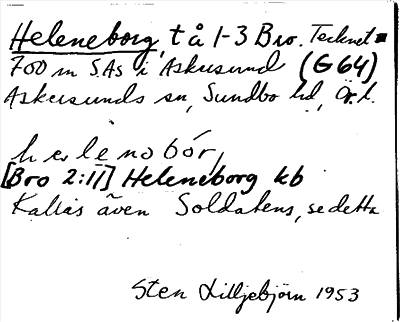 Heleneborg, t å 1-3 Bro. Tecknet =
700 m SAs i Askersund (G 64)
Askersunds sn, Sundbo hd, Ör. l.
helenobór,
[Bro 2:11] Heleneborg kb
Kallas även Soldatens, se detta
Sten Lilljebjörn 1953